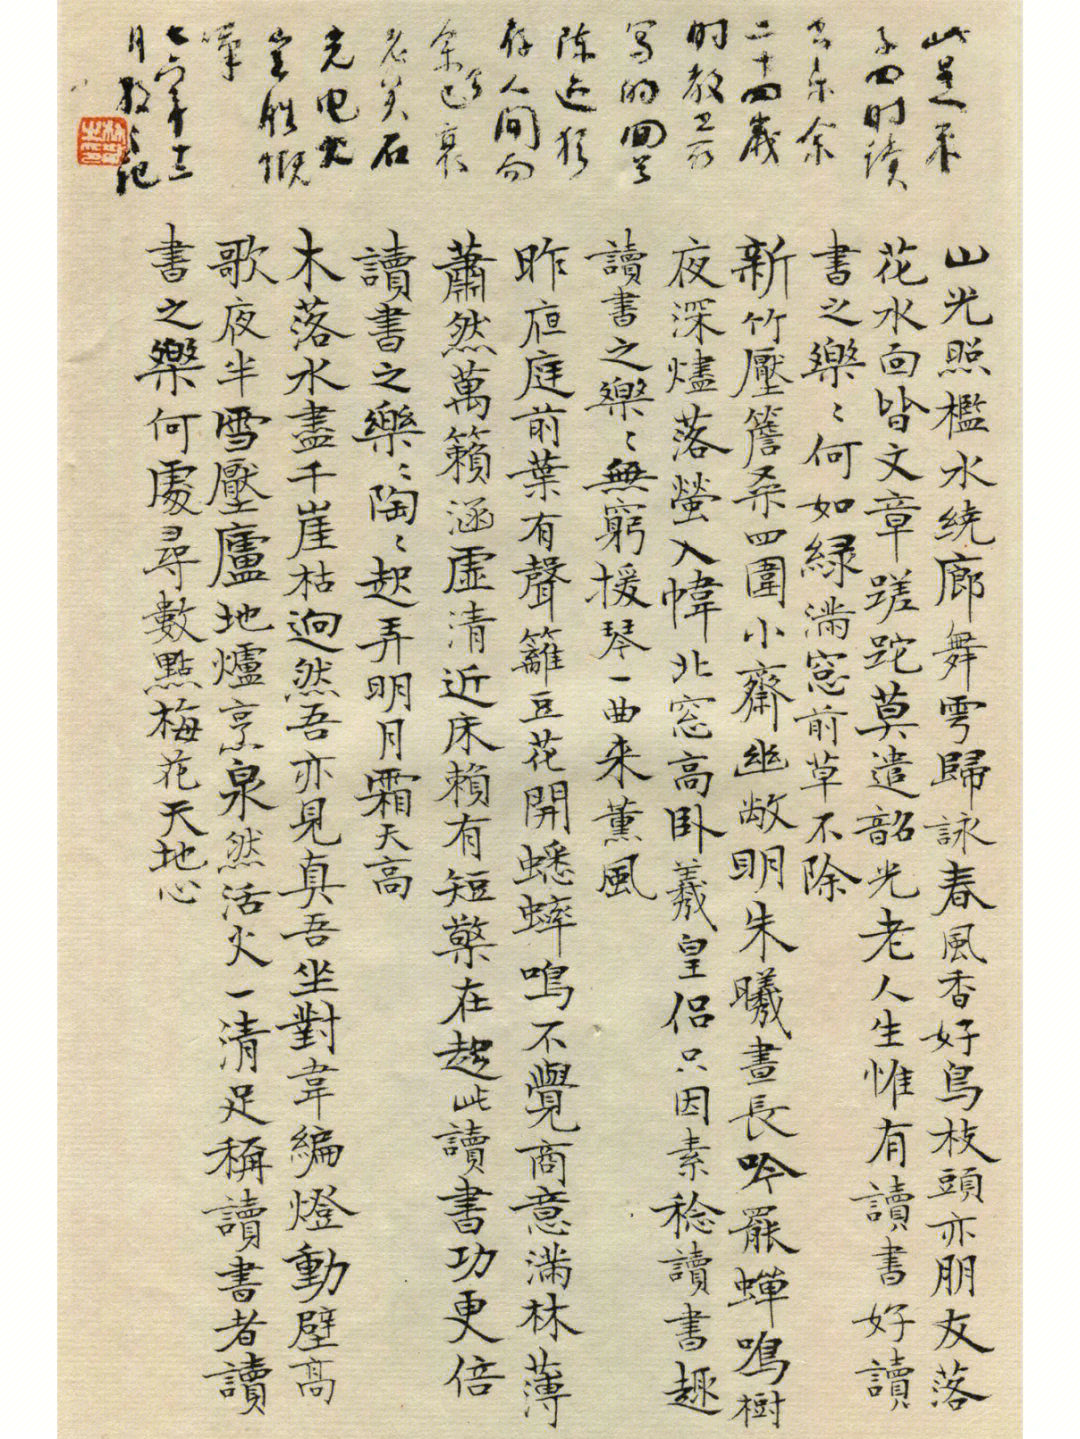 此是朱
子四时读
书乐余
二十四歲
时教
写的回首
陈迹犹
存人间而
余今已衰
老矣石
光电火
岂胜慨
嘆
七六年十二
月散之记
山光照檻水繞廊舞雩歸詠春風香好鳥枝頭亦朋友落
花水面皆文章蹉跎莫遣韶光老人生惟有讀書好讀
書之樂樂何如綠滿窓前草不除
新竹壓簷桑四圍小齋幽敞明朱曦晝長吟罷蟬鳴樹
夜深燼落螢入幃北窓高卧羲皇侶只因素稔讀書趣
讀書之樂樂無窮援琴一曲来薰風
昨夜庭前葉有聲籬豆花開蟋蟀鳴不覺商意滿林薄
蕭然萬籟涵虛清近床賴有短檠在趁此讀書功更倍
讀書之樂樂陶陶起弄明月霜天高
木落水盡千崖枯迥然吾亦見真吾坐對韋編燈動壁高
歌夜半雪壓廬地爐烹泉然活火一清足稱讀書者讀
書之樂何處尋數點梅花天地心